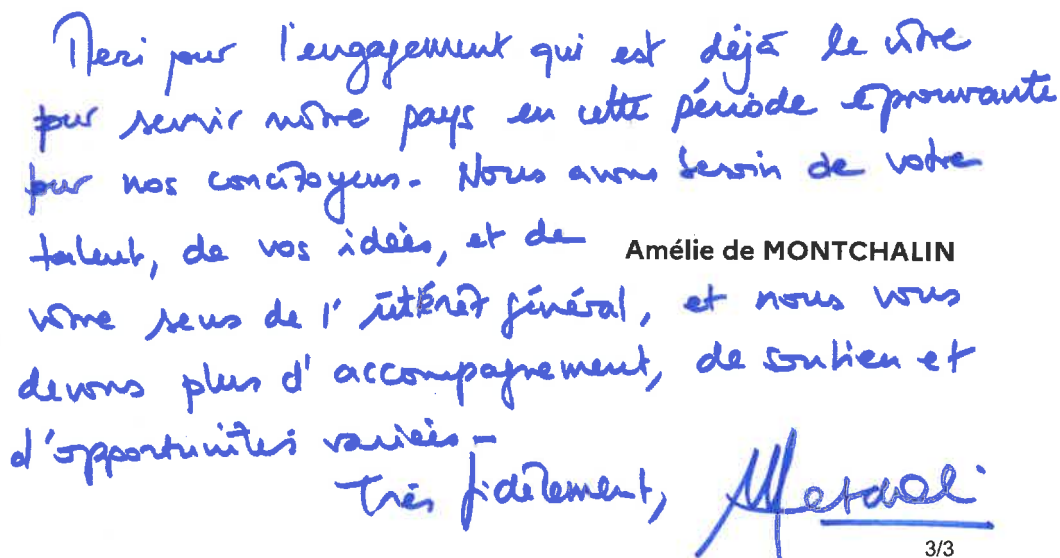 Merci pour l'engagement qui est déjà le vôtre
pour servir nôtre pays en cette période éprouvante
pour nos concitoyens. Nous avons besoin de votre
talent, de vos idées, et de
Amélie de MONTCHALIN
vôtre sens de l'intérêt général, et nous vous
devons plus d'accompagnement, de soutien et
d'opportunités variées -
Très fidèlement,
3/3